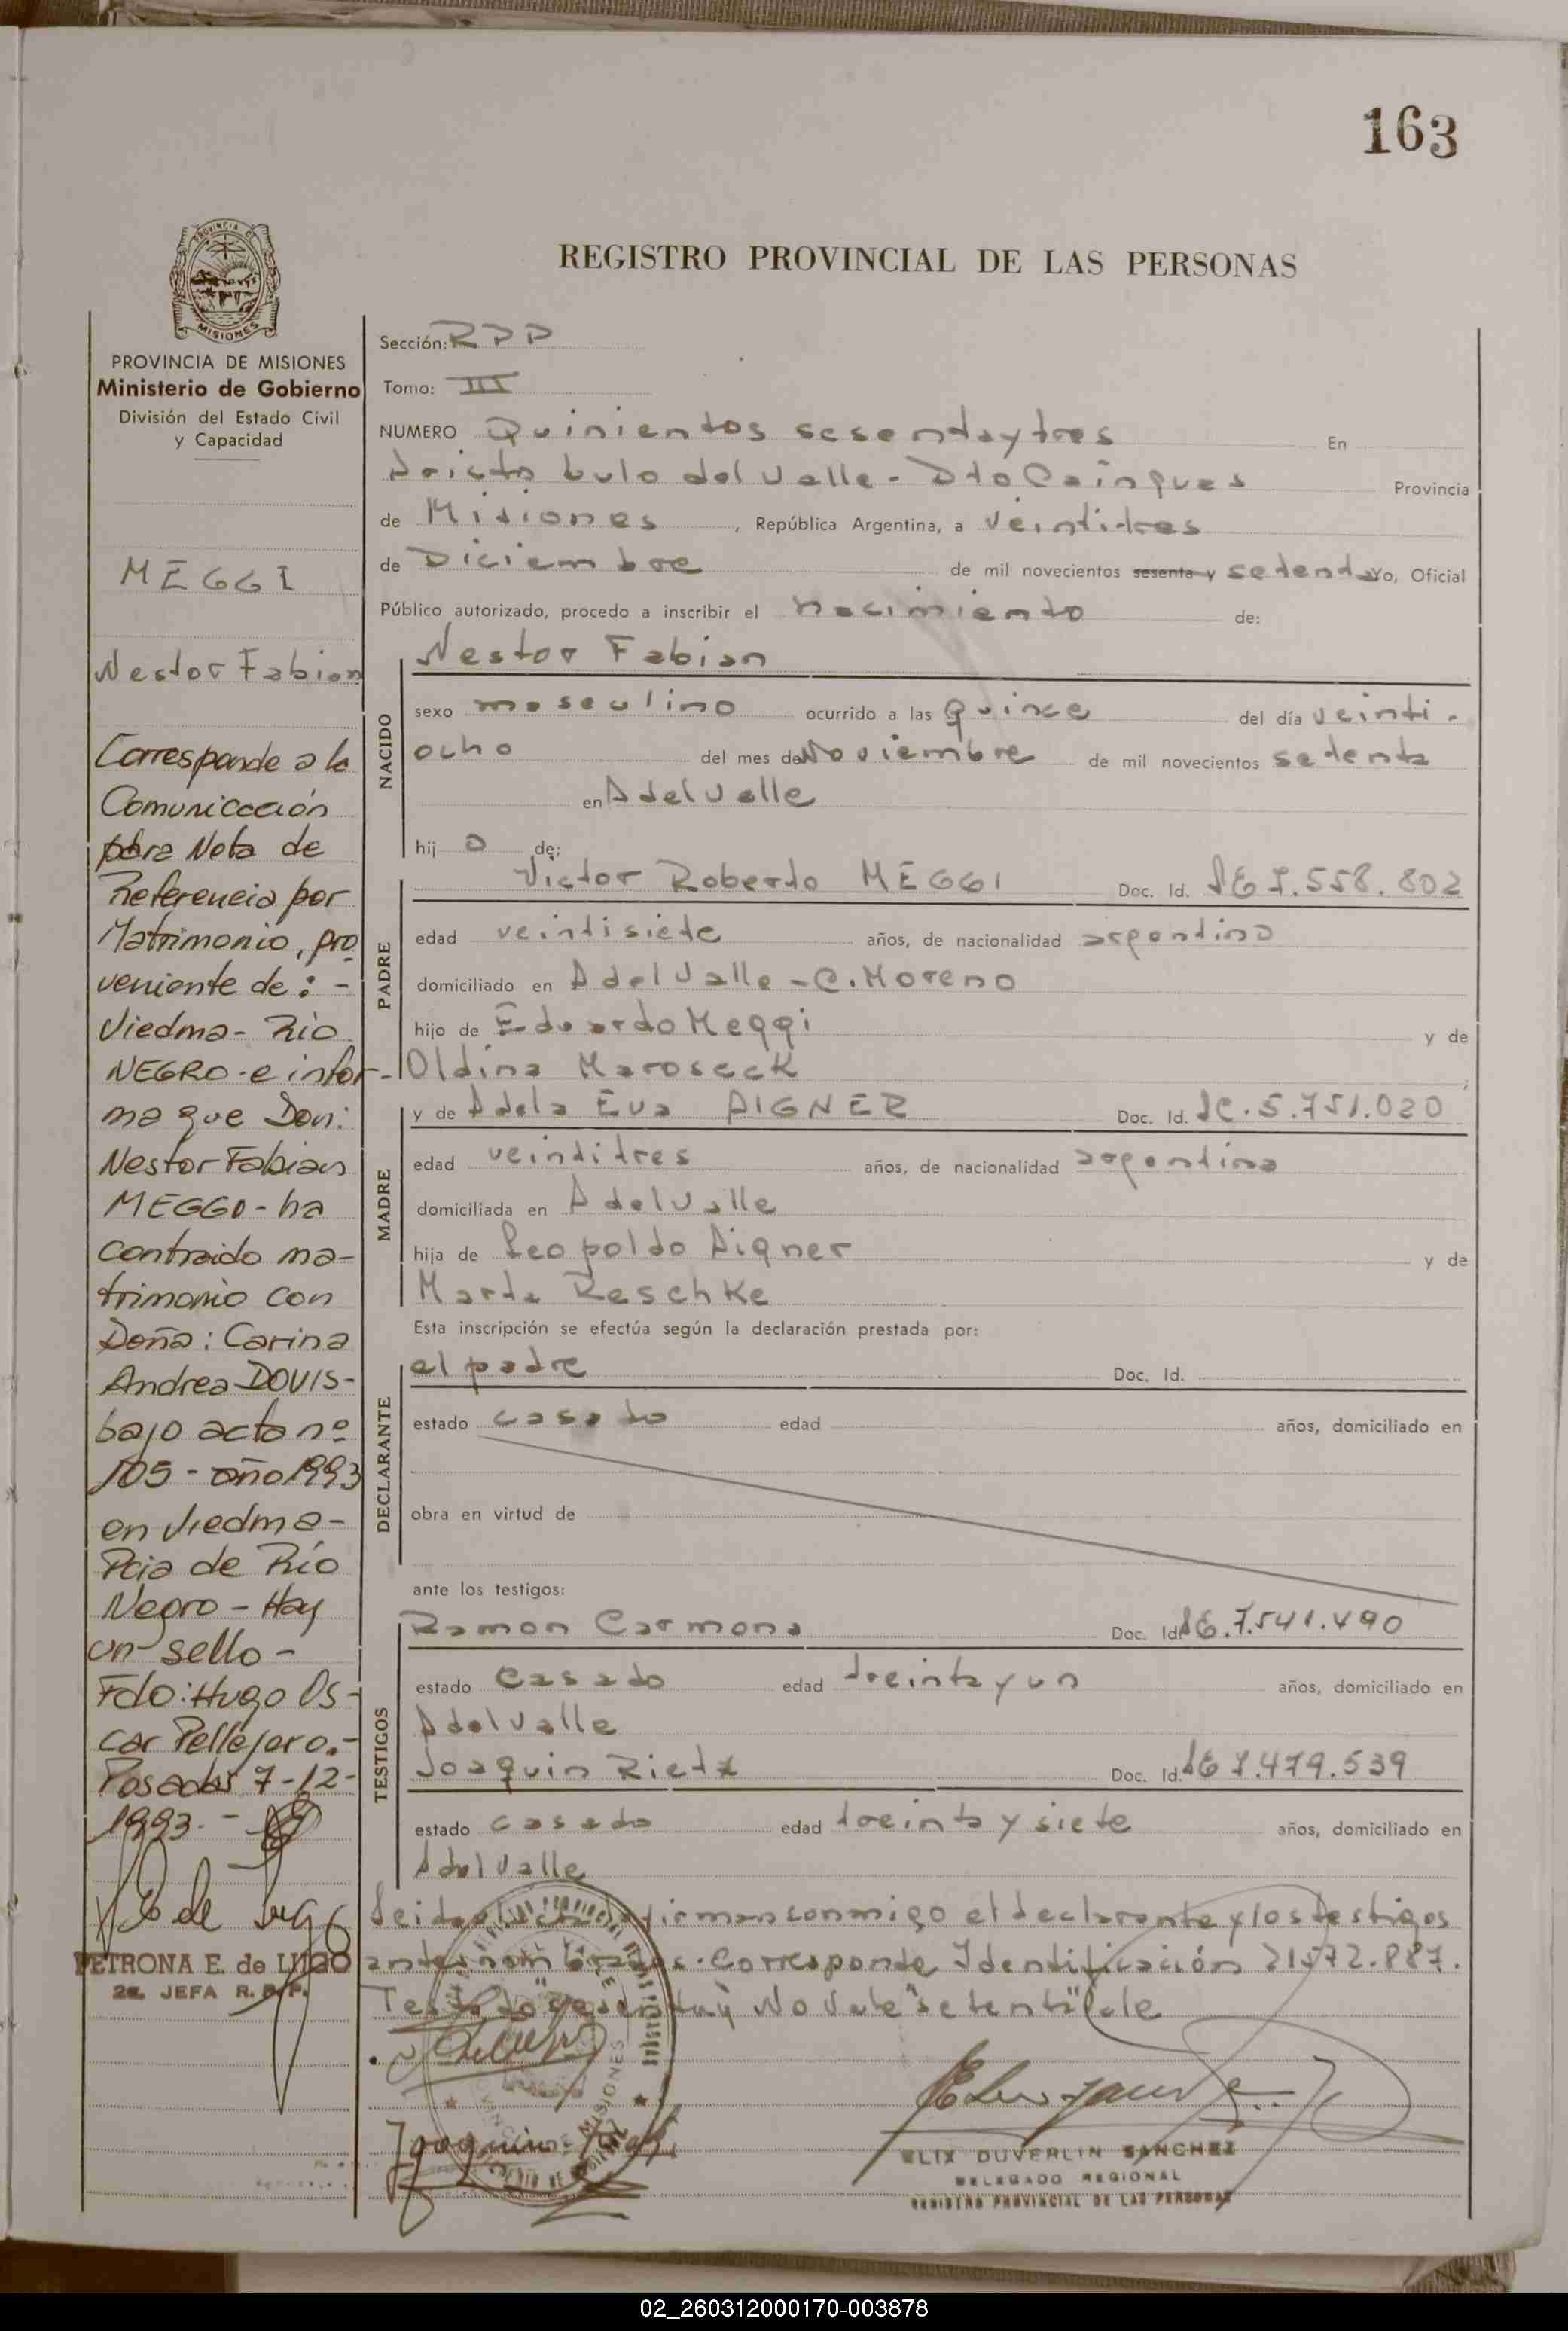 163
REGISTRO PROVINCIAL DE LAS PERSONAS
PROVINCIA DE
MISIONES
PROVINCIA DE MISIONES
Ministerio de Gobierno
División del Estado Civil
y Capacidad
MEGGI
Nestor Fabian
Corresponde a la
Comunicación
para Nota de
Referencia por
Matrimonio, pro
veniente de: -
Viedma - Río
NEGRO - e infor-
ma que Don:
Nestor Fabian
MEGGO - ha
contraido ma-
trimonio con
Doña: Carina
Andrea DOVIS-
bajo acta nº
105 - año 1993
en Viedma -
Pcia de Río
Negro - Hay
un sello -
Fdo: Hugo Os-
car Pellejero.-
Posadas 7-12-
1993.-
PETRONA E. de LUGO
2a. JEFA R. P. P.
Sección: RPP
Tomo: III
NUMERO Quinientos sesentaytres En
Aristobulo del Valle - Dto Cainguas Provincia
de Misiones, República Argentina, a veintitres
de Diciembre de mil novecientos sesenta y setenta Yo, Oficial
Público autorizado, procedo a inscribir el nacimiento de:
NACIDO
Nestor Fabian
sexo masculino ocurrido a las quince del día veinti-
ocho del mes de Noviembre de mil novecientos setenta
en AdelValle
hij o de:
PADRE
Victor Roberto MEGGI Doc. Id. LE 7.558.802
edad veintisiete años, de nacionalidad argentino
domiciliado en AdelValle - C. Moreno
hijo de Eduardo Meggi y de
Oldina Maroseck
MADRE
y de Adela Eva AIGNER Doc. Id. LC. 5.751.020
edad veintitres años, de nacionalidad argentina
domiciliada en AdelValle
hija de Leopoldo Aigner y de
Marta Reschke
Esta inscripción se efectúa según la declaración prestada por:
DECLARANTE
el padre Doc. Id.
estado casado edad años, domiciliado en
obra en virtud de
ante los testigos:
TESTIGOS
Ramon Carmona Doc. Id. LE. 7.541.490
estado casado edad treinta y un años, domiciliado en
AdelValle
Joaquin Rietz Doc. Id. LE 7.479.539
estado casado edad treinta y siete años, domiciliado en
AdelValle
firman conmigo el declarante y los testigos
antes nombrados. Corresponde Identificación 21.572.887.
Testado "sesenta y" No Vale "setenta" Vale
Joaquin
ELIX DUVERLIN SANCHEZ
DELEGADO REGIONAL
REGISTRO PROVINCIAL DE LAS PERSONAS
02_260312000170-003878